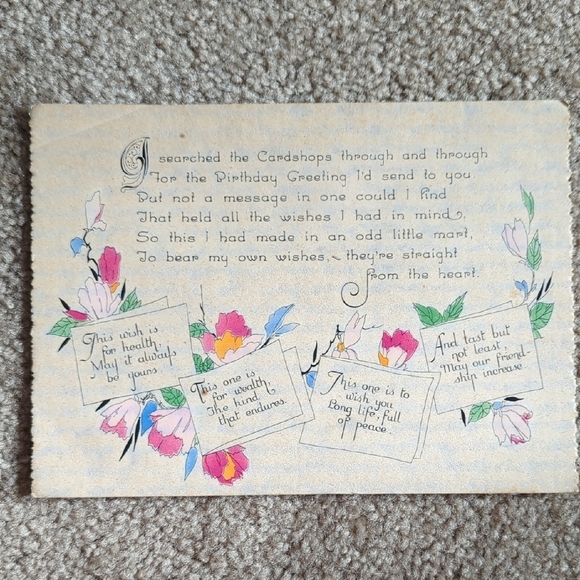 I searched the Cardshops through and through
For the Birthday Greeting I'd send to you
But not a message in one could I find
That held all the wishes I had in mind,
So this I had made in an odd little mart,
To bear my own wishes, - they're straight
from the heart.
This wish is
for health,
May it always
be yours
This one is
for wealth,
The kind
that endures.
This one is to
wish you
Long life, full
of peace.
And last but
not least,
May our friend-
ship increase